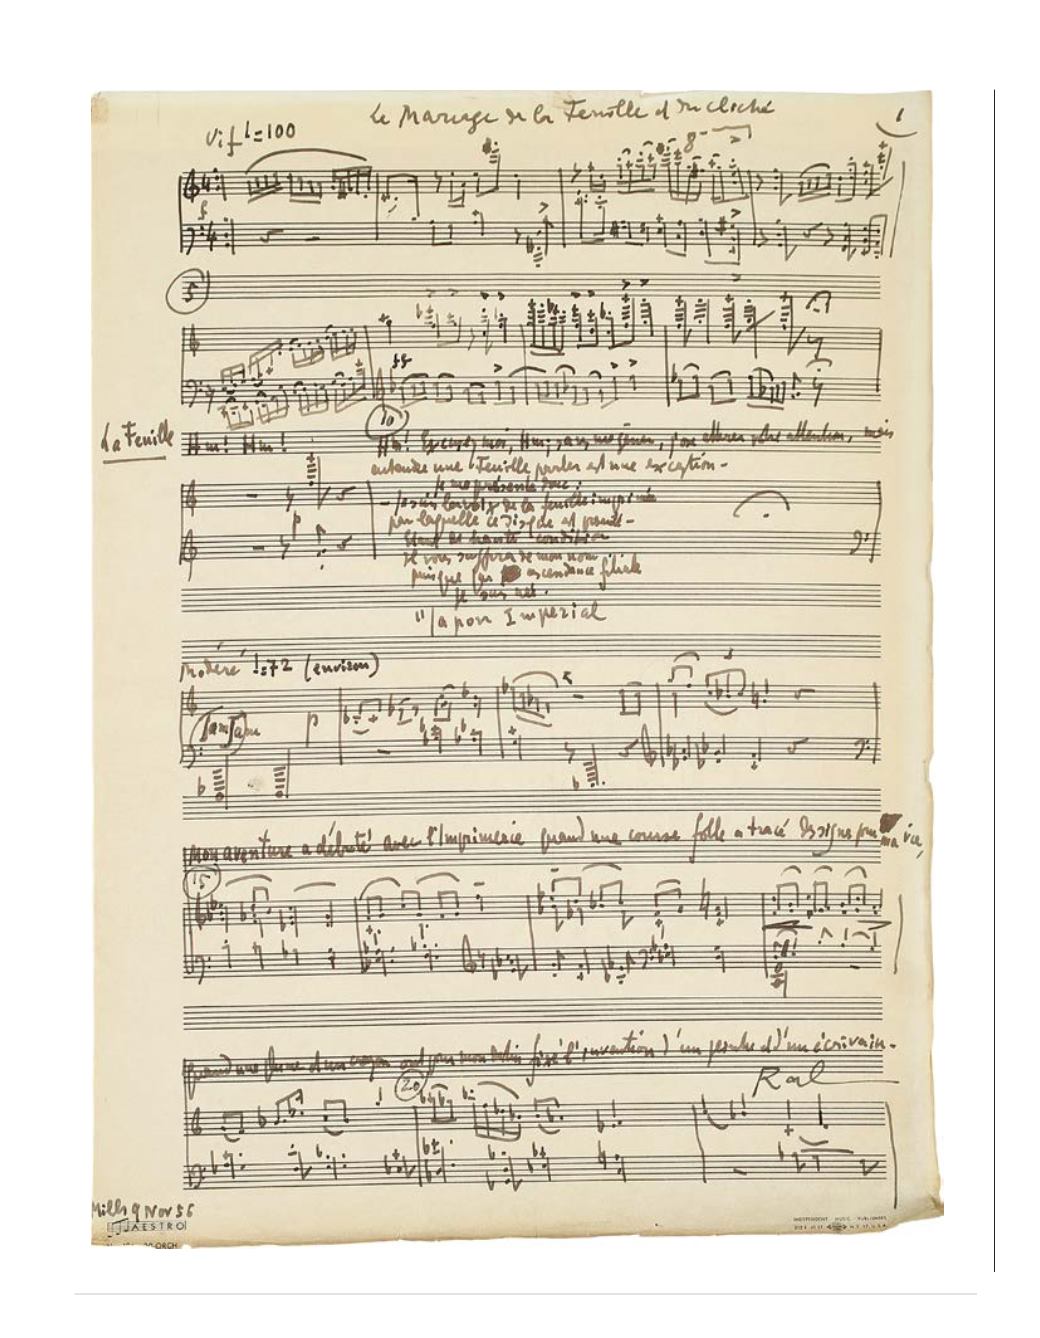 Le Mariage de la Feuille et du cliché
1
Vif ♩=100
8
f
5
ff
10
La Feuille
Hm! Hm! Hm! Excusez moi, Hm; sans me gêner, j'ose attirer votre attention, mais
entendre une Feuille parler est une exception-
Je me présente donc:
- Je suis la voix de la feuille imprimée
par laquelle ce Disque est
Etant de haute condition
Il vous suffira de mon nom
puisque par ascendance filiale
je suis née.
"Japon Imperial
Modéré ♩=72 (environ)
TamTam
p
Mon aventure a débuté avec l'Imprimerie quand une course folle a tracé des signes pour ma vie,
15
Quand une plume et un crayon ont pour mon fixé l'invention d'un peintre et d'un écrivain-
20
Ral
Mills 9 Nov 56
MAESTRO
INDEPENDENT MUSIC PUBLISHERS
ORCH